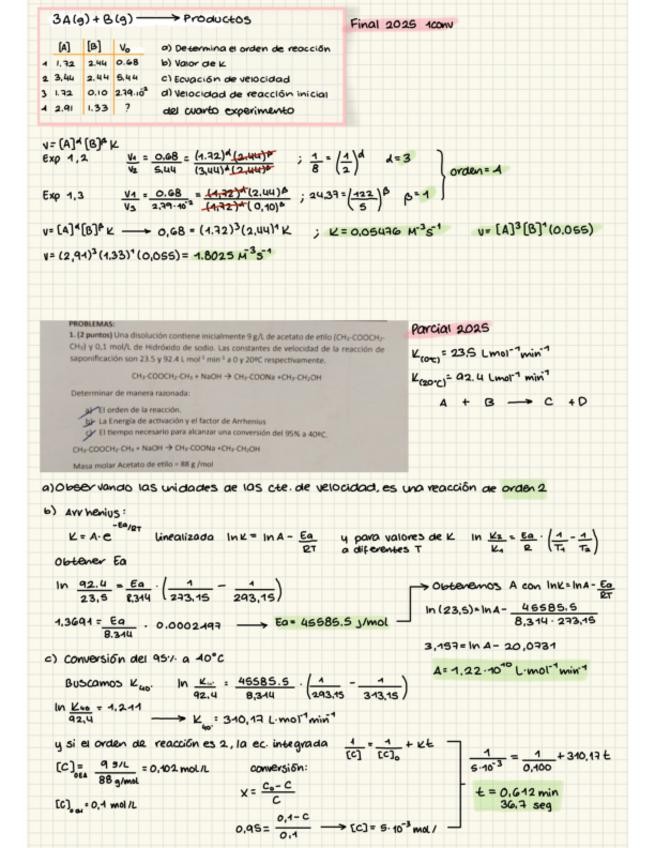 3A(g) + B(g) ⟶ Productos
Final 2025 1conv
[A] [B] V₀
1 1.72 2.44 0.68
2 3.44 2.44 5.44
3 1.72 0.10 2.79·10⁻²
4 2.91 1.33 ?
a) Determina el orden de reacción
b) Valor de K
c) Ecuación de velocidad
d) Velocidad de reacción inicial
del cuarto experimento
v = [A]^α [B]^β K
Exp 1,2 V₁/V₂ = 0.68/5.44 = (1.72)^α (2.44)^β / (3.44)^α (2.44)^β ; 1/8 = (1/2)^α α=3
orden = 4
Exp 1,3 V₁/V₃ = 0.68/2.79·10⁻² = (1.72)^α (2.44)^β / (1.72)^α (0,10)^β ; 24.37 = (122/5)^β β=1
v = [A]^α [B]^β K ⟶ 0,68 = (1.72)³ (2.44)¹ K ; K = 0,05476 M⁻³s⁻¹ v = [A]³ [B]¹ (0,055)
v = (2,91)³ (1.33)¹ (0,055) = 1.8025 M⁻³s⁻¹
PROBLEMAS:
1. (2 puntos) Una disolución contiene inicialmente 9 g/L de acetato de etilo (CH₃-COOCH₂-
CH₃) y 0,1 mol/L de Hidróxido de sodio. Las constantes de velocidad de la reacción de
saponificación son 23.5 y 92.4 L mol⁻¹ min⁻¹ a 0 y 20ºC respectivamente.
CH₃-COOCH₂-CH₃ + NaOH → CH₃-COONa +CH₃-CH₂OH
Determinar de manera razonada:
a) El orden de la reacción.
b) La Energía de activación y el factor de Arrhenius
c) El tiempo necesario para alcanzar una conversión del 95% a 40ºC.
CH₃-COOCH₂-CH₃ + NaOH → CH₃-COONa +CH₃-CH₂OH
Masa molar Acetato de etilo = 88 g /mol
Parcial 2025
K(0°C) = 23,5 L mol⁻¹ min⁻¹
K(20°C) = 92.4 L mol⁻¹ min⁻¹
A + B ⟶ C + D
a) Observando las unidades de las cte. de velocidad, es una reacción de orden 2
b) Arrhenius:
K = A·e^(-Ea/RT) Linealizada lnK = lnA - Ea/RT y para valores de K a diferentes T ln K₂/K₁ = Ea/R · (1/T₁ - 1/T₂)
Obtener Ea
ln 92.4/23,5 = Ea/8,314 · (1/273,15 - 1/293,15)
1,3691 = Ea/8.314 · 0.0002497 ⟶ Ea = 45585.5 J/mol
Obtenemos A con lnK = lnA - Ea/RT
ln(23,5) = lnA - 45585.5/8,314·273,15
3,157 = ln A - 20,0731
A = 1,22·10¹⁰ L·mol⁻¹min⁻¹
c) Conversión del 95% a 40°C
Buscamos K₄₀. ln K₄₀/92,4 = 45585.5/8,314 · (1/293,15 - 1/313,15)
ln K₄₀/92,4 = 1,211 ⟶ K₄₀ = 310,17 L·mol⁻¹min⁻¹
y si el orden de reacción es 2, la ec. integrada 1/[C] = 1/[C]₀ + Kt
[C]₀ = 9 g/L / 88 g/mol = 0,102 mol/L
[C] = 0,1 mol/L
conversión:
X = C₀ - C / C
0,95 = 0,1-C / 0,1 ⟶ [C] = 5·10⁻³ mol/
1/5·10⁻³ = 1/0,100 + 310,17 t
t = 0,612 min
36,7 seg